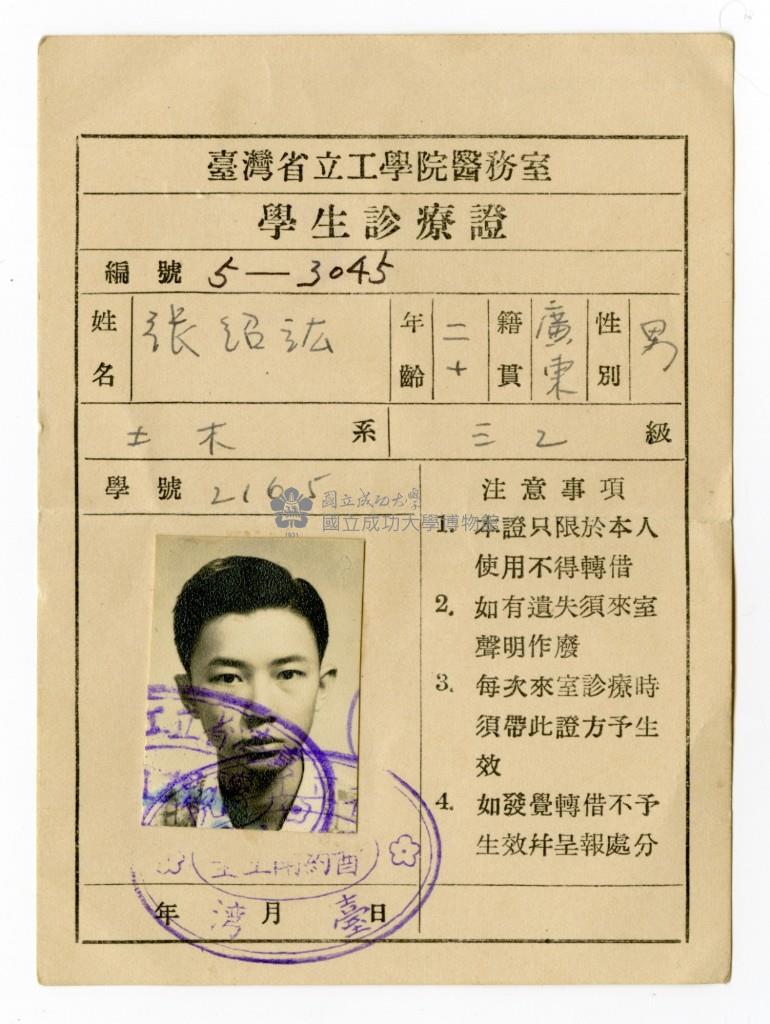 臺灣省立工學院醫務室
學生診療證
編號 5—3045
姓名 張紹竑 年齡 二十 籍貫 廣東 性別 男
土木 系 三乙 級
學號 2165
國立成功大學
國立成功大學博物館
1931
注意事項
1. 本證只限於本人
使用不得轉借
2. 如有遺失須來室
聲明作廢
3. 每次來室診療時
須帶此證方予生
效
4. 如發覺轉借不予
生效幷呈報處分
年 月 日
臺灣